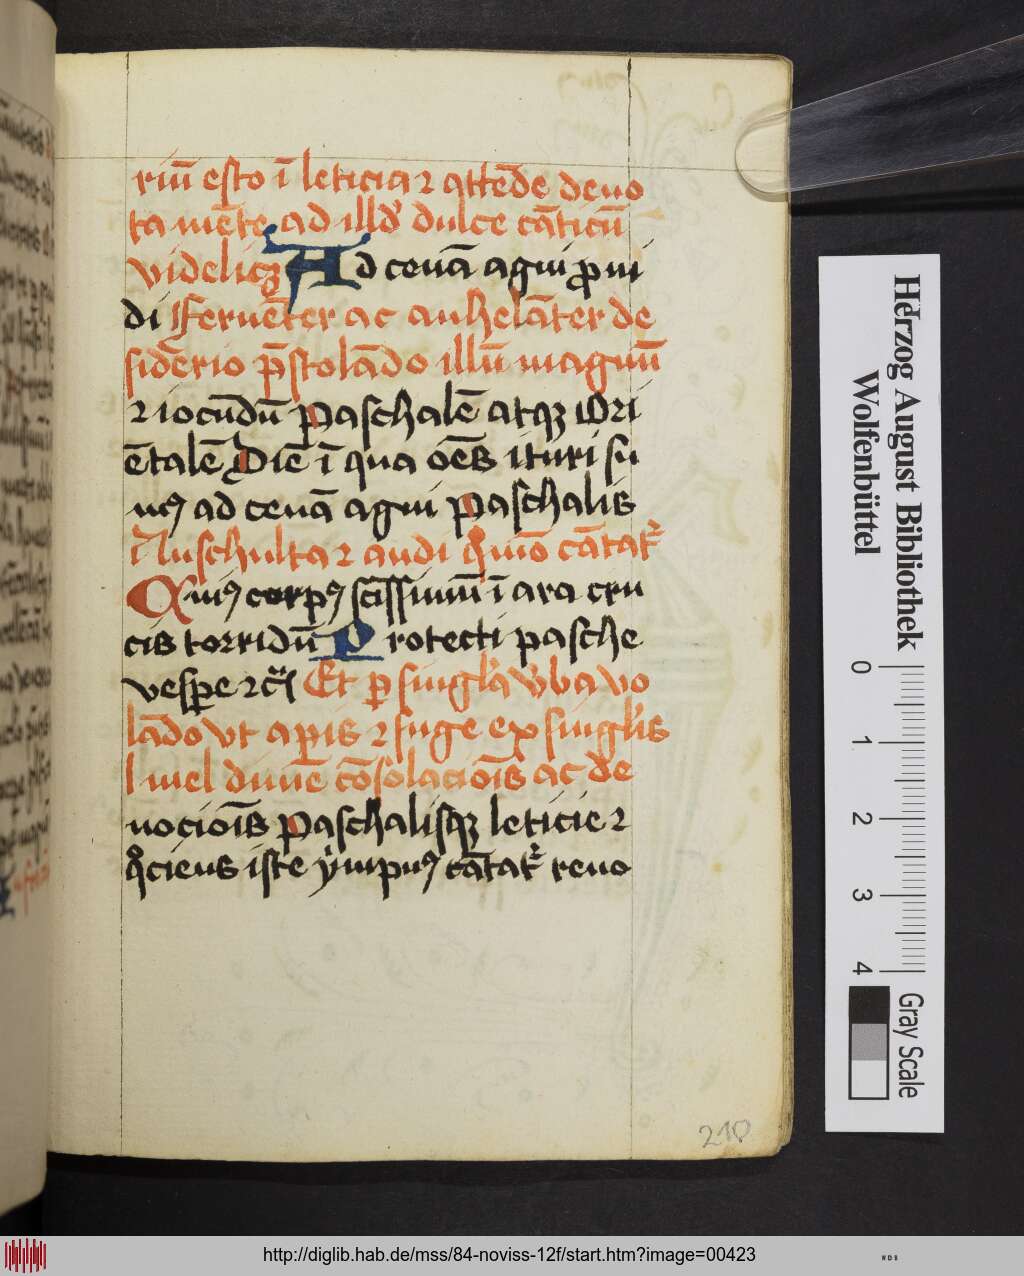 riū esto ī leticia ⁊ attēde deuo
ta mēte ad illd̛ dulce cāticū
videlicꝫ Ad cenā agni ꝓui
di Feruēter ac anhelāter de
sidērio p̄stolādo illū magnū
⁊ iocūdū paschalē atqꝫ Ori
ētalē Diē ī qua oēs ituri su
mꝰ ad cenā agni paschalis
Auschulta ⁊ audi quō cātat̛
Cuiꝰ corpꝰ scīssimū ī ara cru
cis torridū Protecti pasche
vespe ⁊c̄ Et ꝑ singl̛a v̛ba vo
lādo vt apis ⁊ suge ex singl̛is
l mel diuīe cōsolaciōis ac de
uociōis paschalisqꝫ leticie ⁊
qͦciens iste ympnꝰ cātat̛ reuo
210
Herzog August Bibliothek
Wolfenbüttel
0 1 2 3 4
Gray Scale
http://diglib.hab.de/mss/84-noviss-12f/start.htm?image=00423